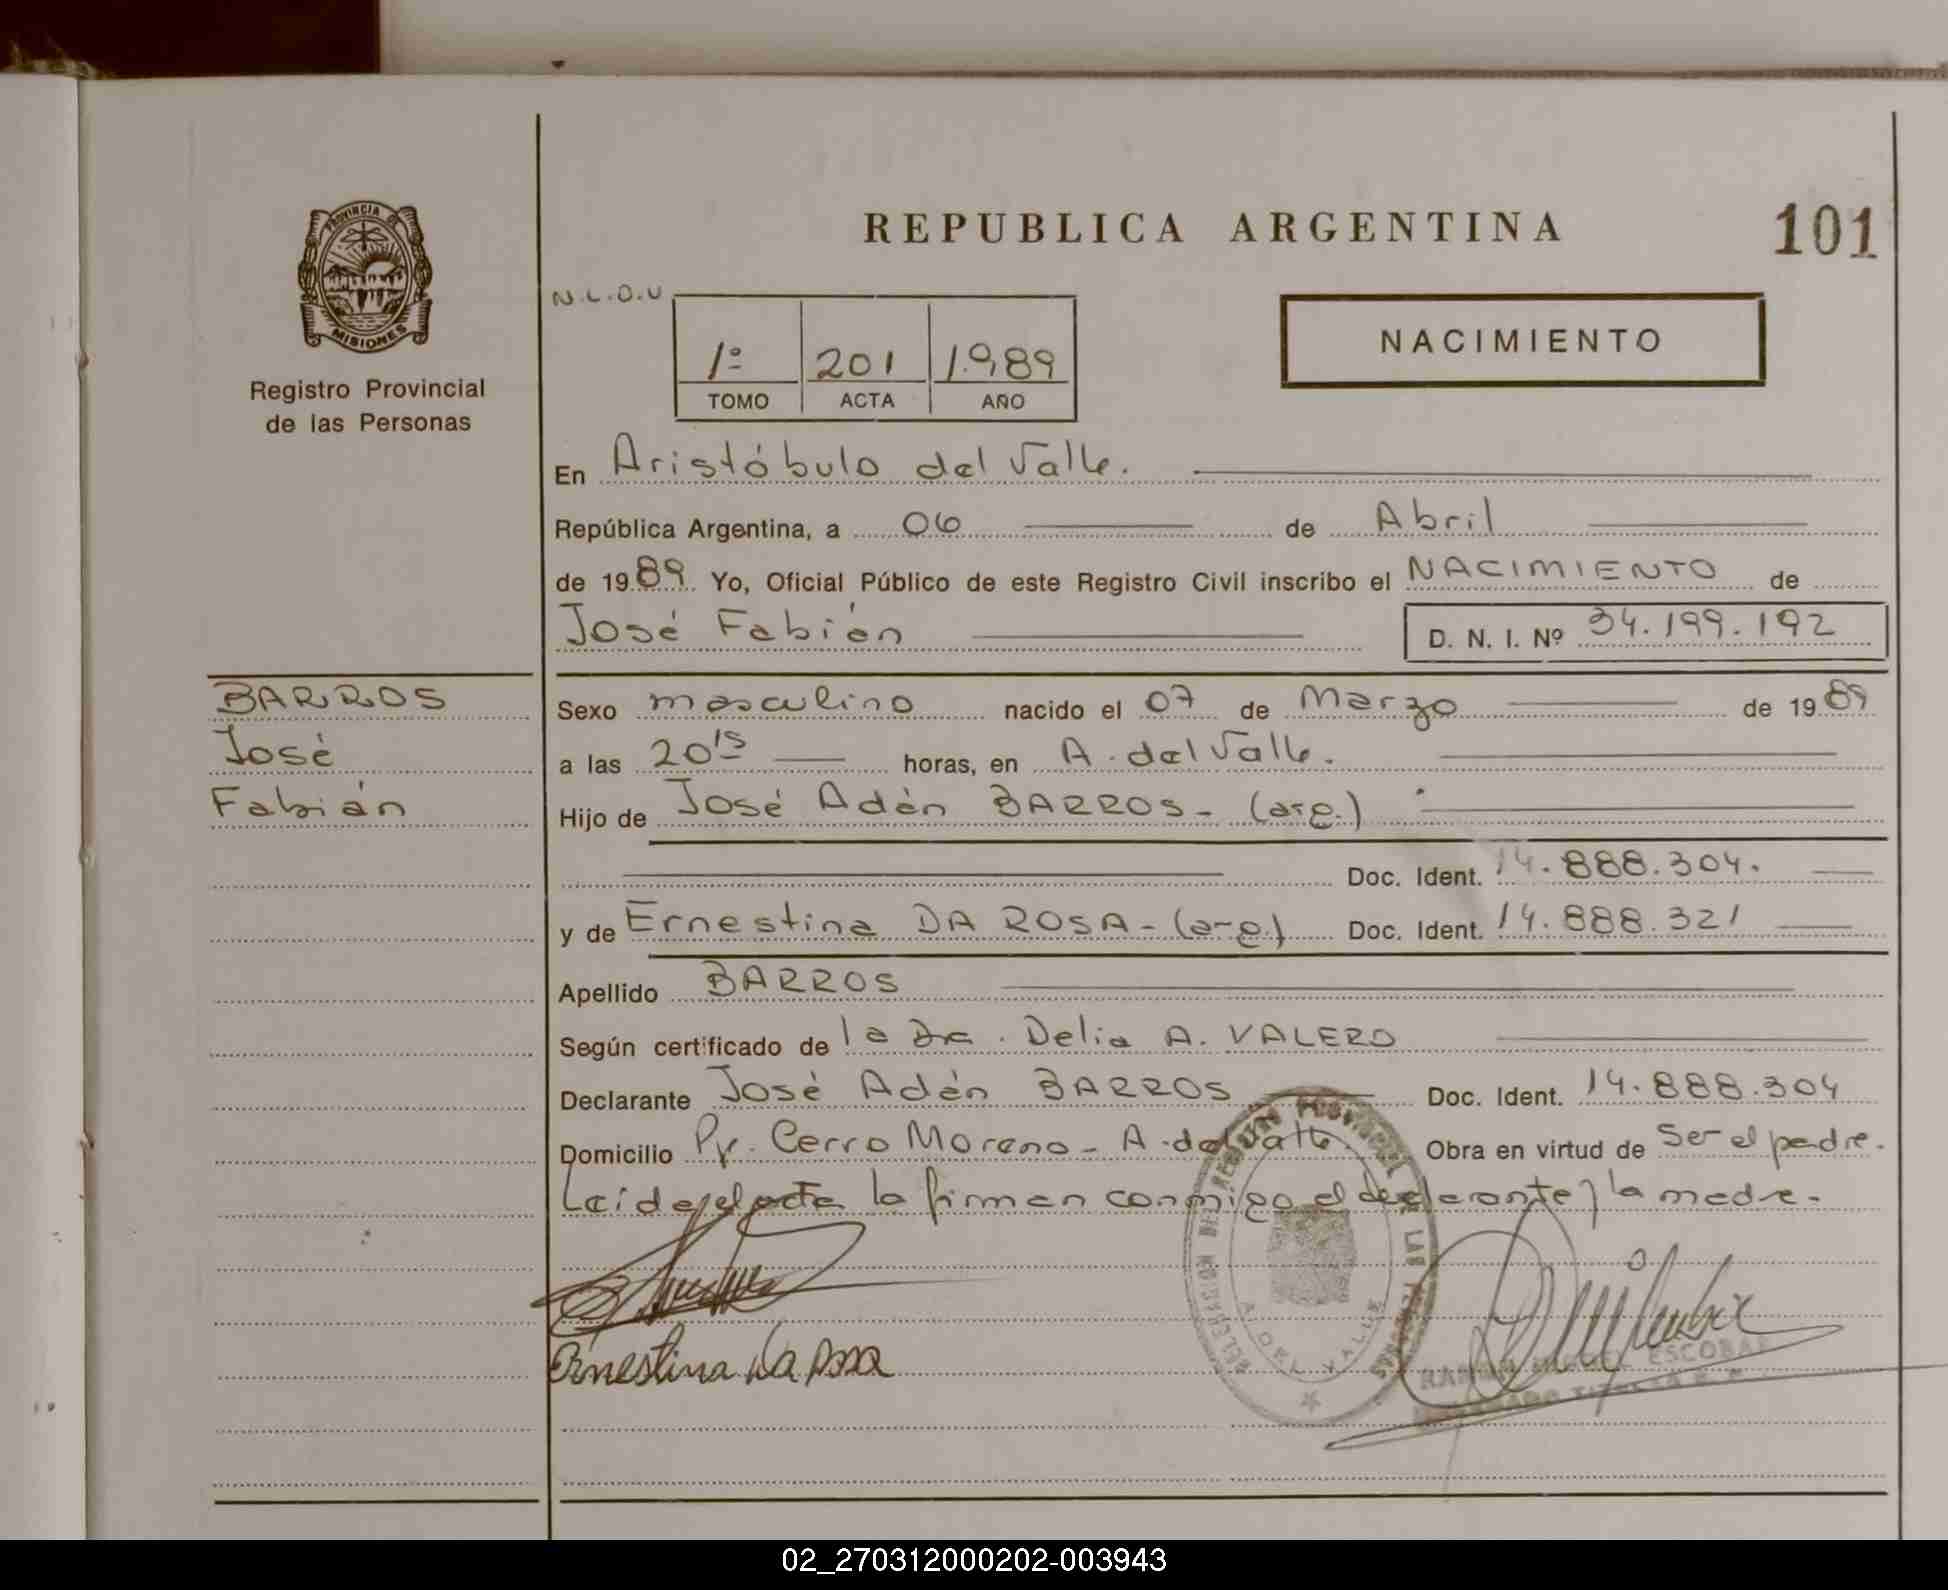 REPUBLICA ARGENTINA
101
PROVINCIA DE
MISIONES
Registro Provincial
de las Personas
N.L.O.U
1º 201 1.989
TOMO ACTA AÑO
NACIMIENTO
En Aristóbulo del Valle.
República Argentina, a 06 de Abril
de 1989. Yo, Oficial Público de este Registro Civil inscribo el NACIMIENTO de
José Fabián
D. N. I. Nº 34.199.192
BARROS
José
Fabián
Sexo masculino nacido el 07 de Marzo de 1989
a las 20¹⁵ horas, en A. del Valle.
Hijo de José Adán BARROS - (arg.)
Doc. Ident. 14.888.304.
y de Ernestina DA ROSA - (arg.) Doc. Ident. 14.888.321
Apellido BARROS
Según certificado de la Dra. Delia A. VALERO
Declarante José Adán BARROS Doc. Ident. 14.888.304
Domicilio Py. Cerro Moreno - A. del Valle Obra en virtud de ser el padre.
Leida el acta la firman conmigo el declarante y la madre.
Ernestina Da Rosa
A. DEL VALLE
RAMON MIGUEL ESCOBAR
02_270312000202-003943